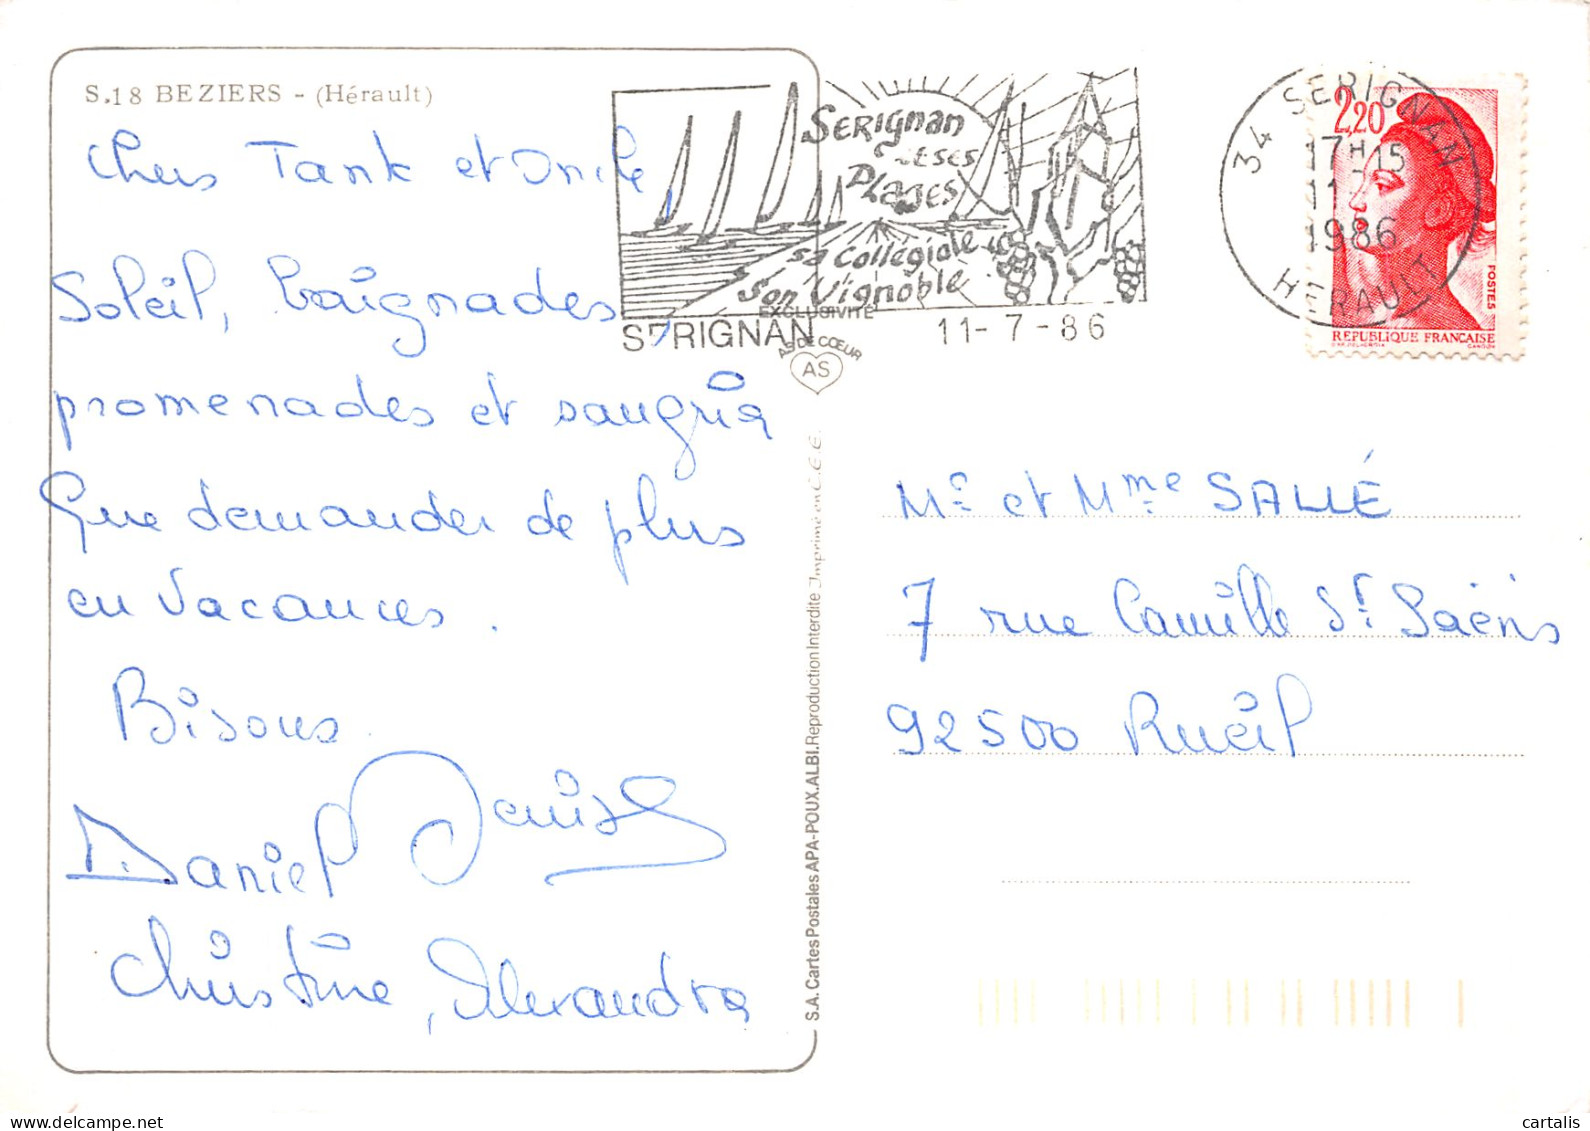 S.18 BEZIERS - (Hérault)
Chers Tante et Oncle,
Soleil, baignades,
promenades et sangria
Que demander de plus
en vacances.
Bisous
Daniel Denise
Christine, Alexandra
SERIGNAN
SES
PLAGES
sa Collegiale
Son Vignoble
SERIGNAN
11-7-86
EXCLUSIVITÉ
AS DE CŒUR
AS
S.A. Cartes Postales APA-POUX. ALBI. Reproduction Interdite Imprimé en C.E.E.
34 SERIGNAN
17H15
1986
HERAULT
2,20
POSTES
REPUBLIQUE FRANÇAISE
Mr et Mme SALLÉ
7 rue Camille St Saëns
92500 Rueil
delcampe.net
cartalis